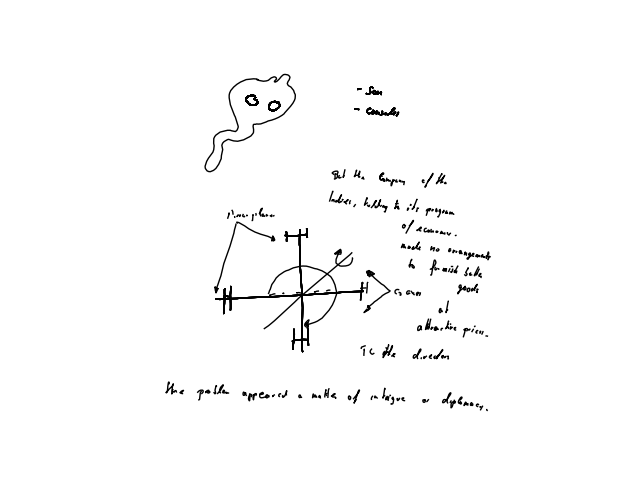 - Sen
- Consoler
But the Company of the
Indies, holding to its program
of economy.
made no arrangements
to furnish better
goods
at
attractive prices.
Mirror plane
C2 axes
the direction
the problem appeared a matter of intrigue or diplomacy.